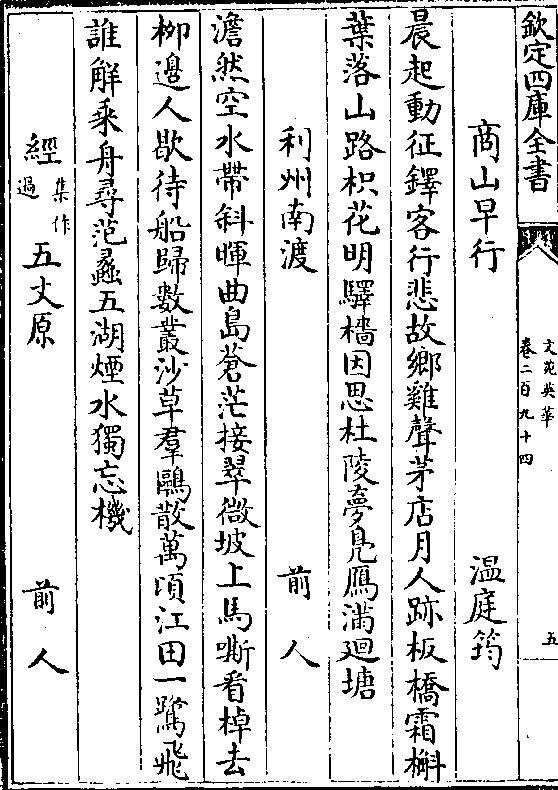 欽定四庫全書
文苑英華
卷二百九十四
五
商山早行 溫庭筠
晨起動征鐸客行悲故鄉雞聲茅店月人跡板橋霜槲
葉落山路枳花明驛檣因思杜陵夢鳧鴈滿廻塘
利州南渡 前人
澹然空水帶斜暉曲島蒼茫接翠微坡上馬嘶看棹去
柳邊人歇待船歸數叢沙草羣鷗散萬頃江田一鷺飛
誰解乘舟尋范蠡五湖煙水獨忘機
經集作過五丈原 前人